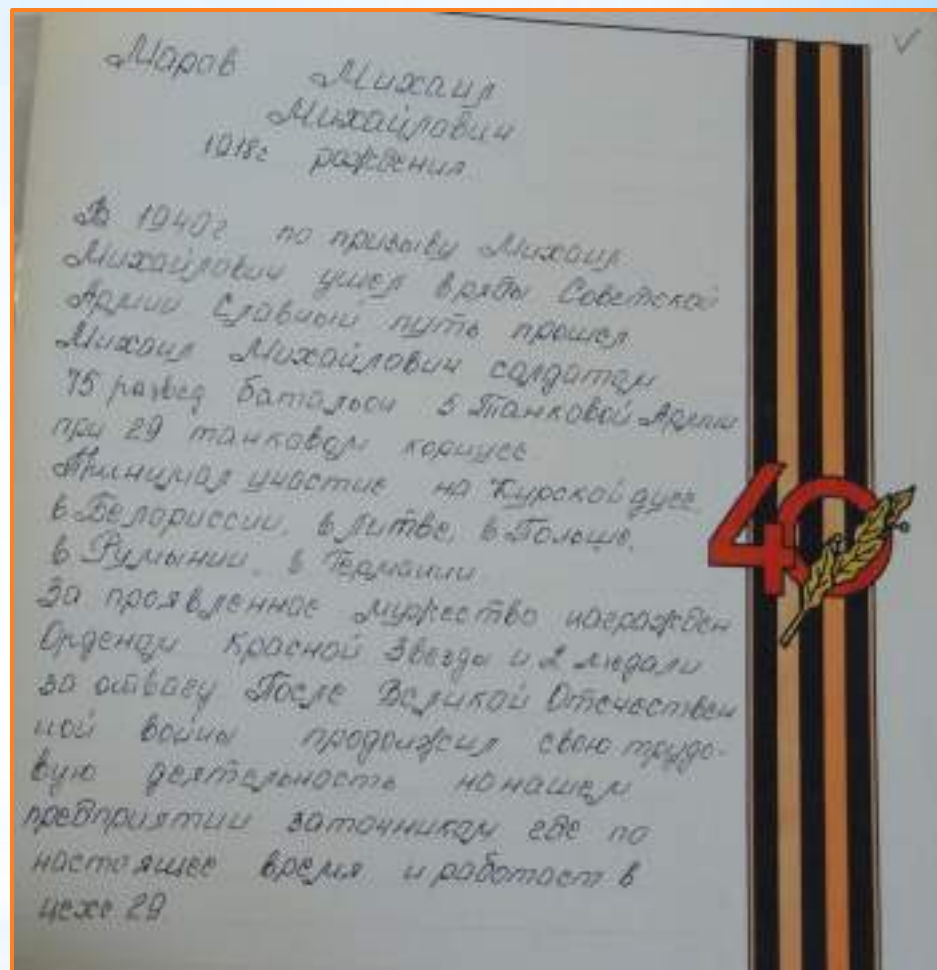 Маров Михаил
Михайлович
1918г рождения
В 1940г по призыву Михаил
Михайлович ушел в ряды Советской
Армии Славный путь прошел
Михаил Михайлович солдатом
75 развед батальон 5 Танковой Армии
при 29 танковом корпусе
Принимал участие на Курской дуге
в Белориссии, в Литве, в Польше,
в Румынии, в Германии.
За проявленное мужество награжден
Орденом Красной Звезды и 2 медали
за отвагу После Великой Отечествен
ной войны продолжил свою трудо-
вую деятельность на нашем
предприятии заточником где по
настоящее время и работает в
цехе 29
40